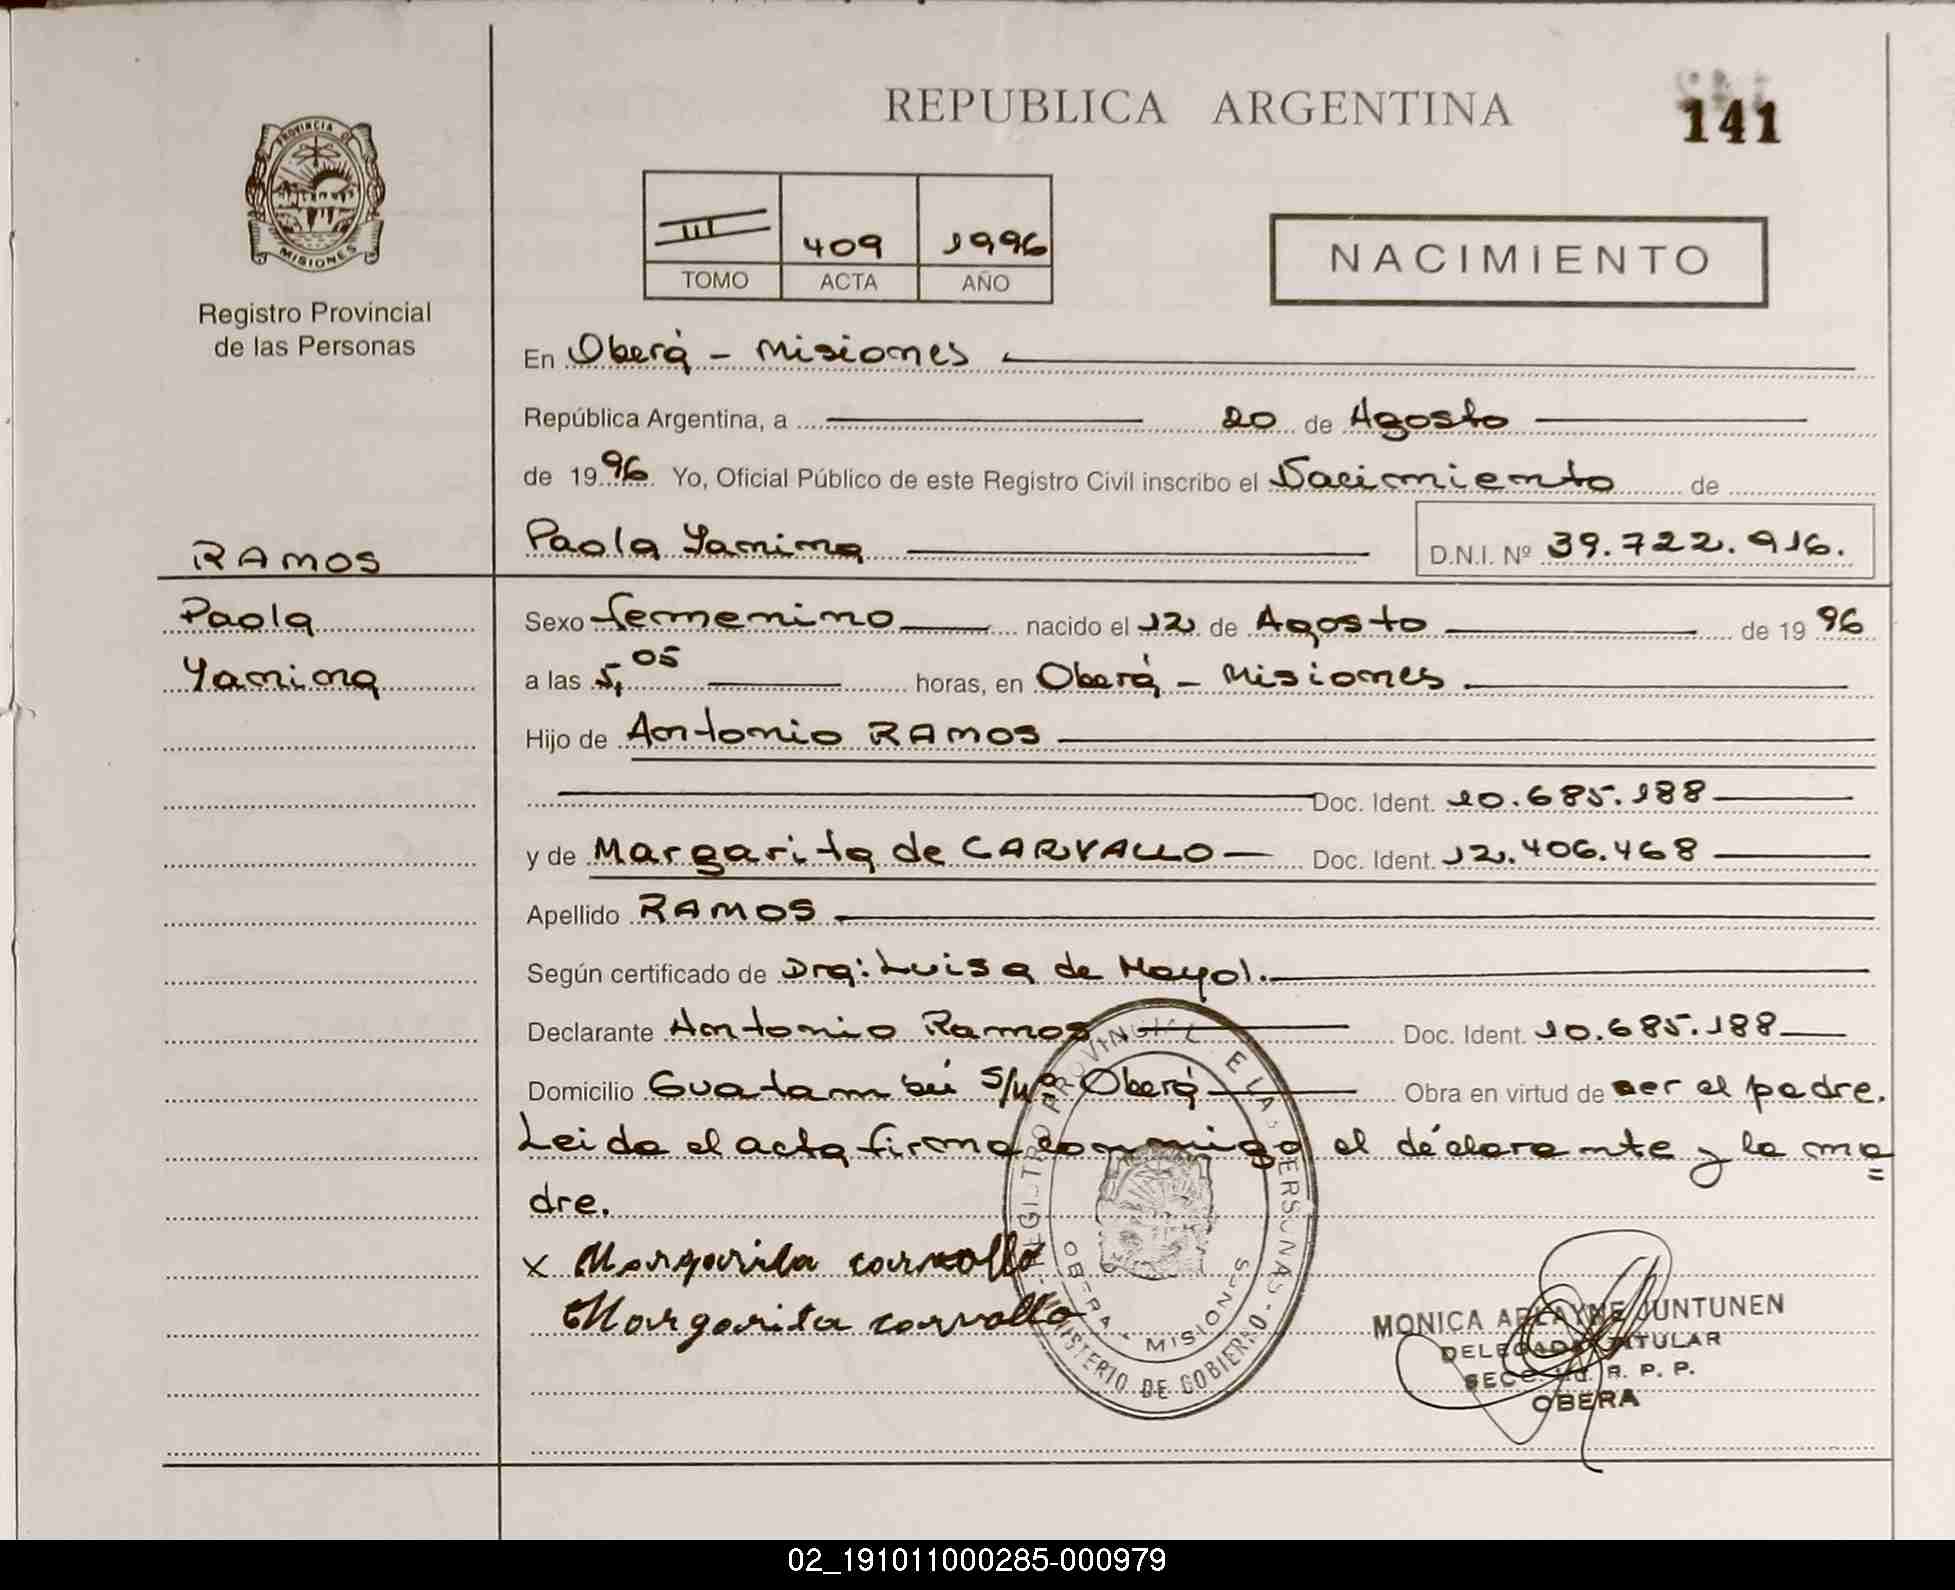 REPUBLICA ARGENTINA
141
PROVINCIA DE
MISIONES
Registro Provincial
de las Personas
III 409 1996
TOMO ACTA AÑO
NACIMIENTO
En Oberá - Misiones
República Argentina, a 20 de Agosto
de 1996 Yo, Oficial Público de este Registro Civil inscribo el Nacimiento de
RAMOS
Paola Yanina D.N.I. Nº 39.722.916.
Paola
Sexo femenino nacido el 12 de Agosto de 1996
Yanina
a las 5,05 horas, en Oberá - Misiones
Hijo de Antonio RAMOS
Doc. Ident. 10.685.188
y de Margarita de CARVALLO Doc. Ident. 12.406.468
Apellido RAMOS
Según certificado de Dra: Luisa de Mayol.
Declarante Antonio Ramos Doc. Ident. 10.685.188
Domicilio Guatambú S/Nº Oberá Obra en virtud de ser el padre.
Leida el acta firma conmigo el declarante y la ma=
dre.
x Margarita carvallo
Margarita carvallo
REGISTRO PROVINCIAL DE LAS PERSONAS - MINISTERIO DE GOBIERNO -
OBERA - MISIONES
MONICA ARLAYNE JUNTUNEN
DELEGADA TITULAR
R. P. P.
OBERA
02_191011000285-000979